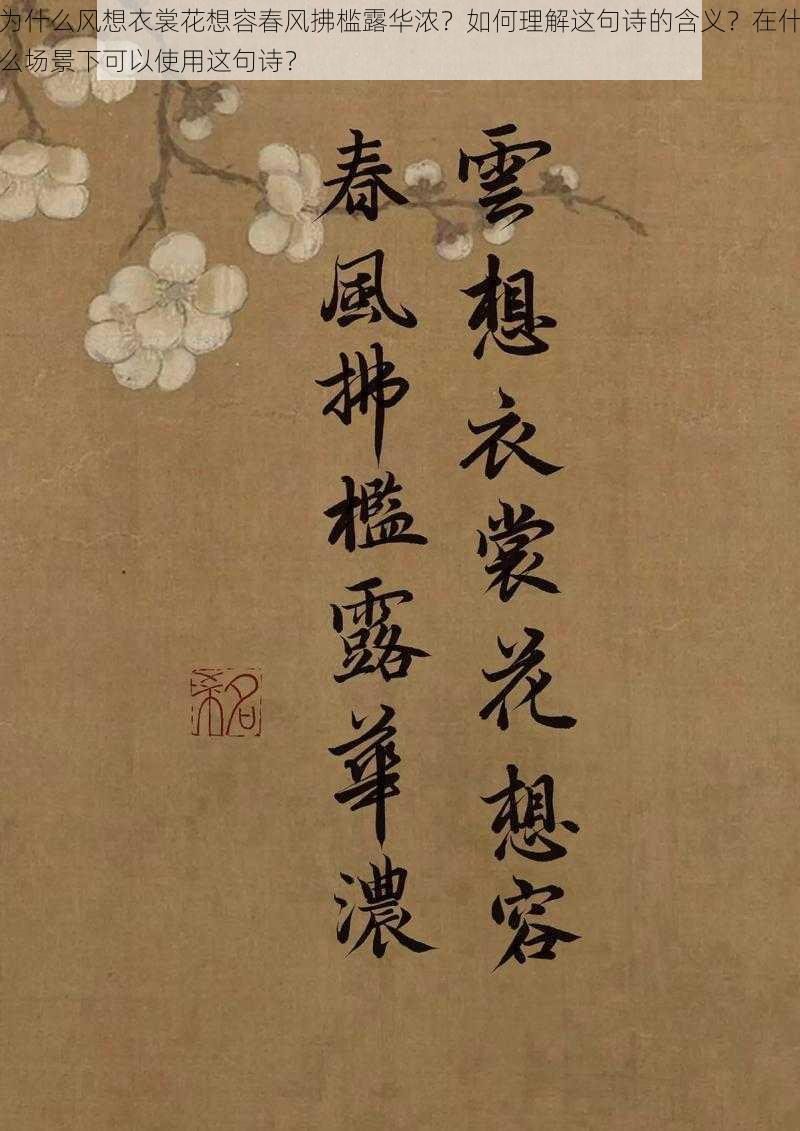 为什么风想衣裳花想容春风拂槛露华浓？如何理解这句诗的含义？在什
么场景下可以使用这句诗？
雲想衣裳花想容
春風拂檻露華濃